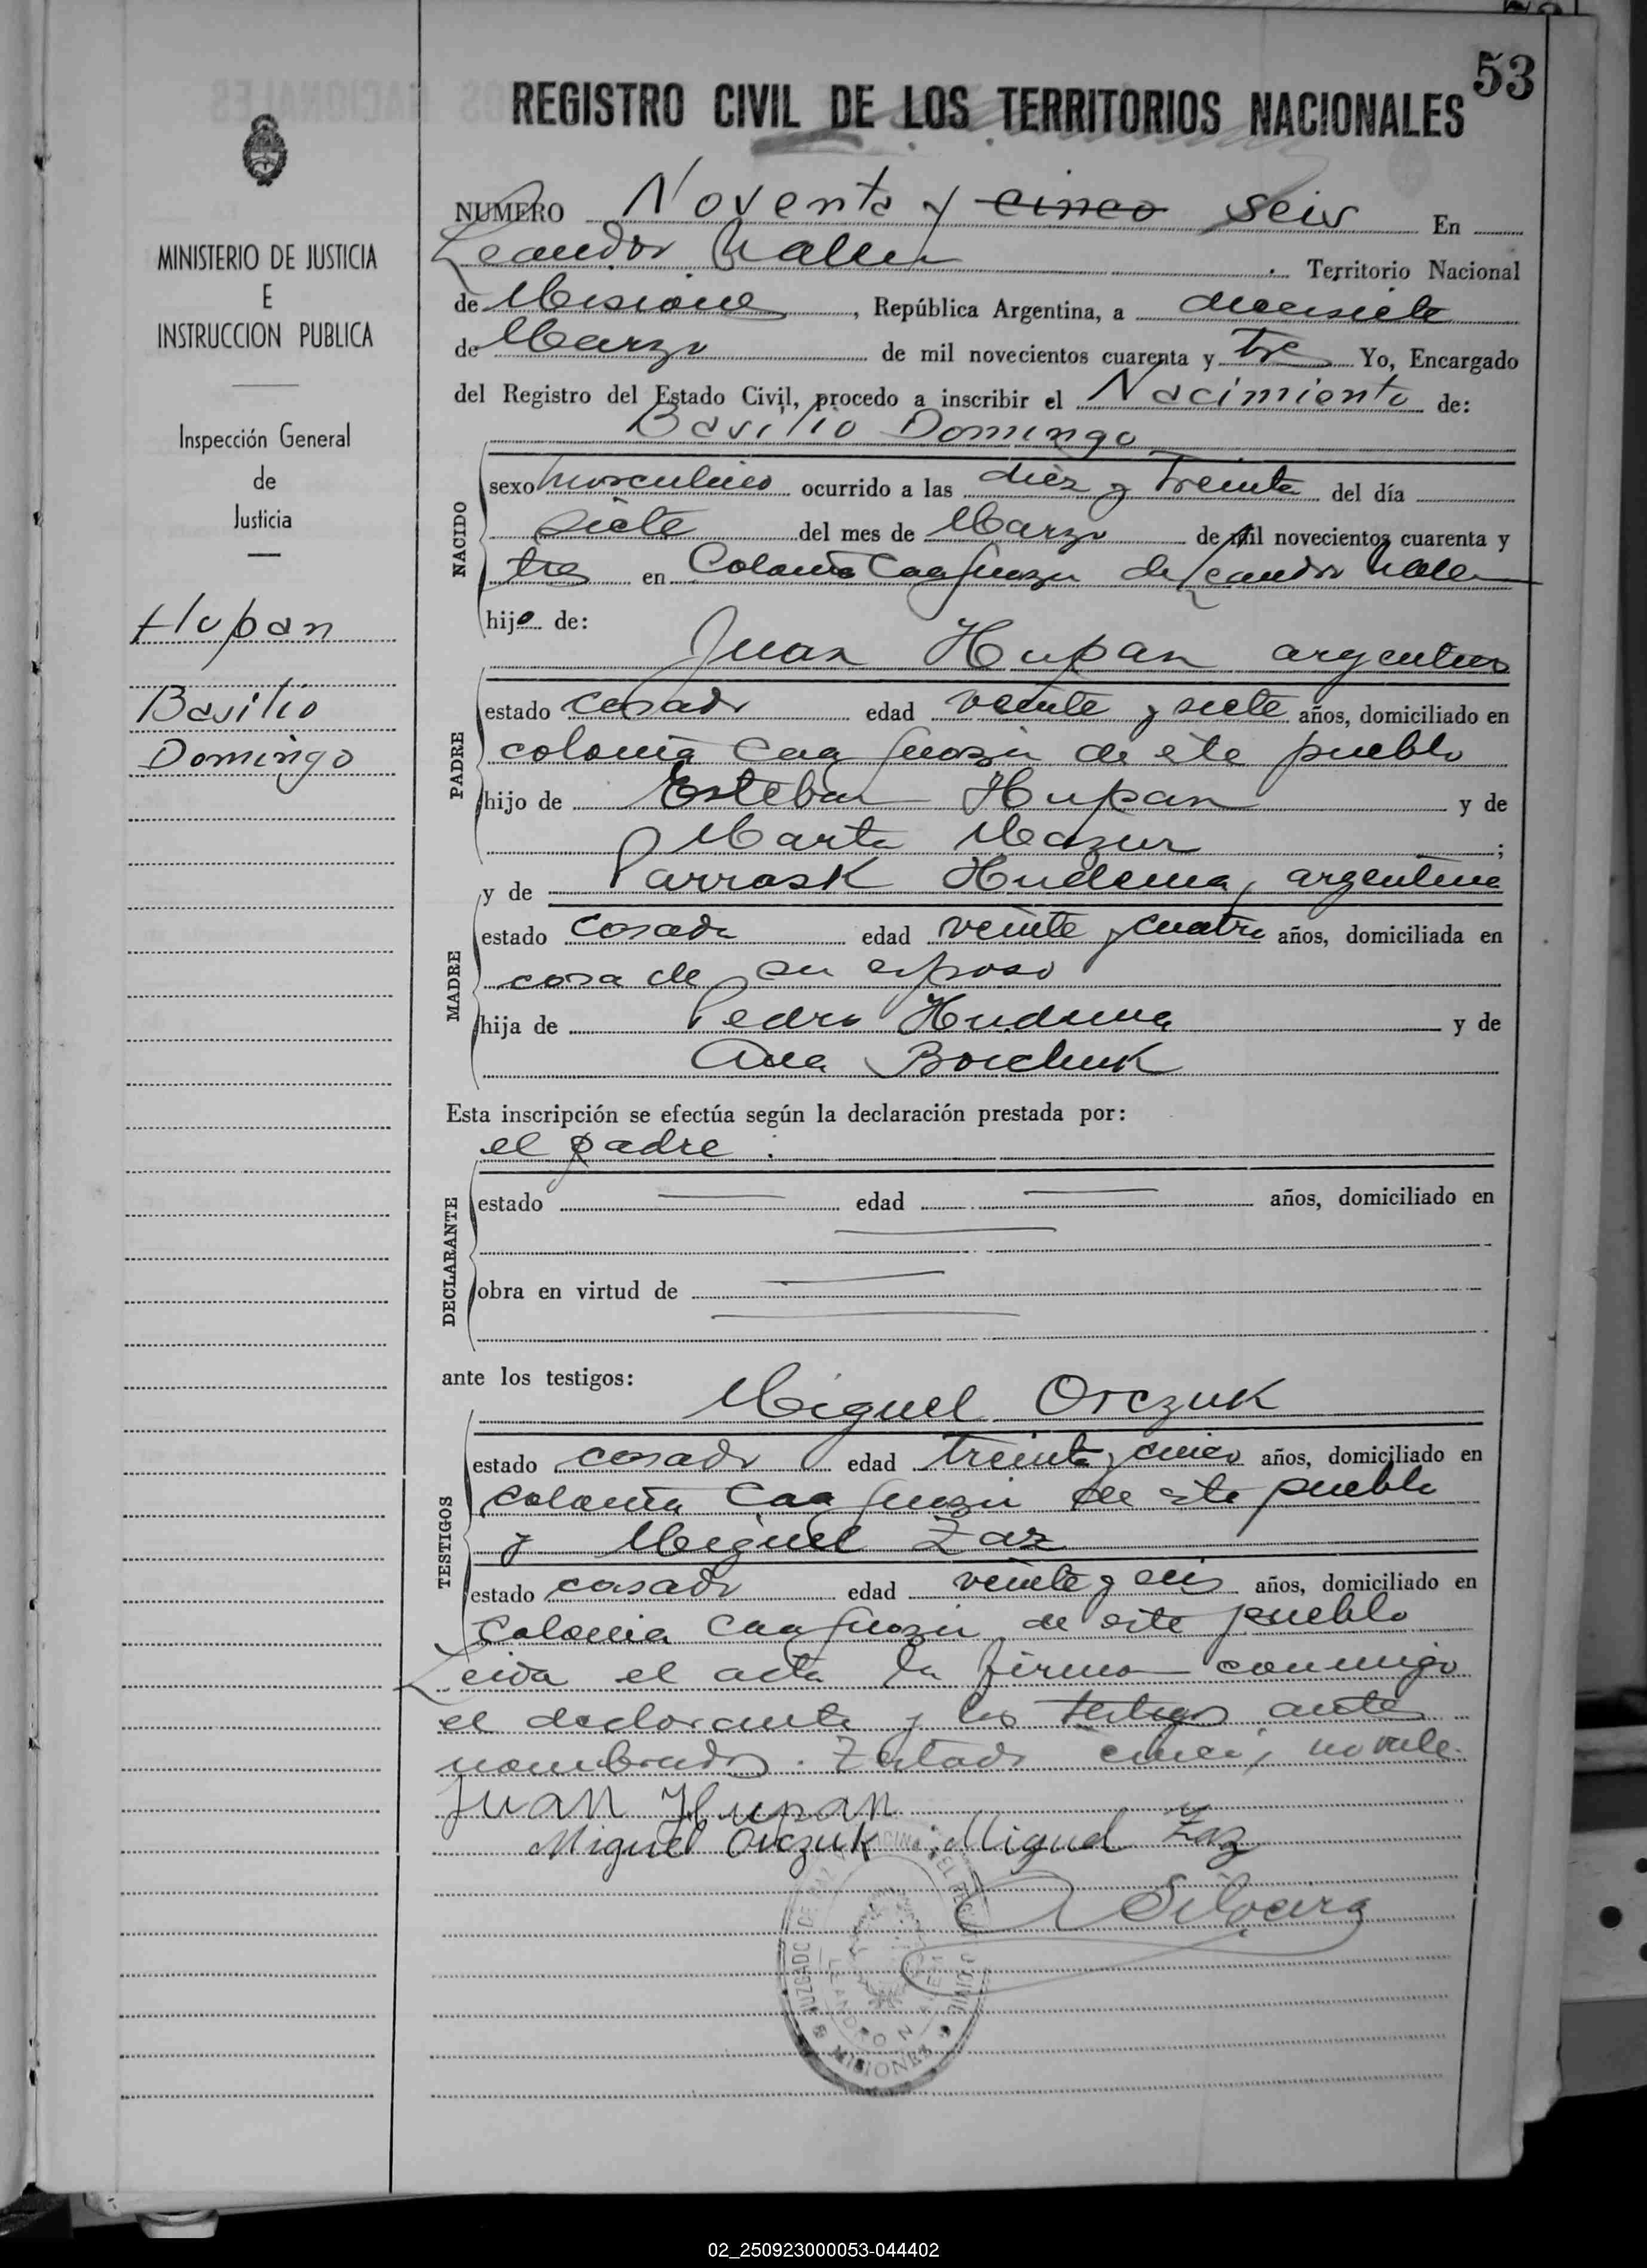 53
REGISTRO CIVIL DE LOS TERRITORIOS NACIONALES
MINISTERIO DE JUSTICIA
E
INSTRUCCION PUBLICA
Inspección General
de
Justicia
Hupan
Basilio
Domingo
NUMERO Noventa y cinco seis En
Leandro N alem Territorio Nacional
de Misiones, República Argentina, a diecisiete
de Marzo de mil novecientos cuarenta y tres Yo, Encargado
del Registro del Estado Civil, procedo a inscribir el Nacimiento de:
Basilio Domingo
NACIDO
sexo masculino ocurrido a las diez y treinta del día
siete del mes de Marzo de mil novecientos cuarenta y
tres en Colonia Caaguazu de Leandro N alem
hijo de:
Juan Hupan argentino
PADRE
estado casado edad veinte y siete años, domiciliado en
colonia Caaguazu de este pueblo
hijo de Esteban Hupan y de
Marta Mazur ;
y de Parrask Hudema, argentina
MADRE
estado casada edad veinte y cuatro años, domiciliada en
casa de su esposo
hija de Pedro Hudema y de
Ana Boichuk
Esta inscripción se efectúa según la declaración prestada por:
el padre.
DECLARANTE
estado edad años, domiciliado en
obra en virtud de
ante los testigos:
Miguel Orczuk
TESTIGOS
estado casado edad treinta y cinco años, domiciliado en
colonia Caaguazu de este pueblo
y Miguel Zaz
estado casado edad veinte y seis años, domiciliado en
Colonia Caaguazu de este pueblo
Leida el acta la firman conmigo
el declarante y los testigos antes
nombrados. Testado cinco, no vale.
Juan Hupan
Miguel Orczuk Miguel Zaz
Silveira
JUZGADO DE PAZ
LEANDRO N
MISIONES
02_250923000053-044402